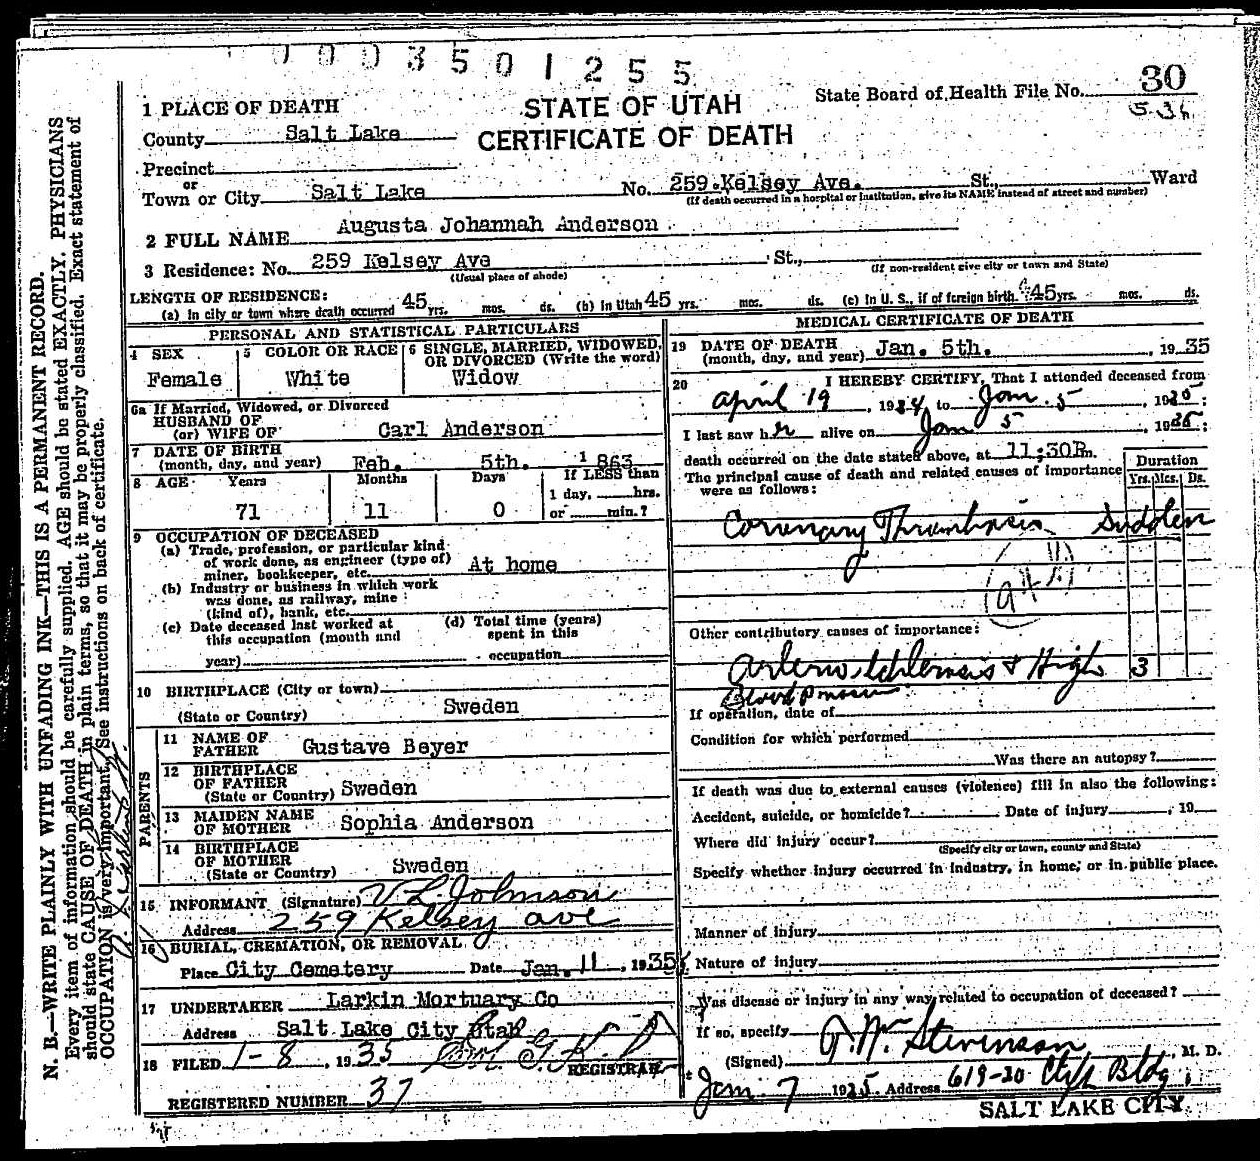 0003501255
1 PLACE OF DEATH
STATE OF UTAH
CERTIFICATE OF DEATH
State Board of Health File No. 30
County Salt Lake
Precinct
or
Town or City Salt Lake No. 259 Kelsey Ave. St., Ward
(If death occurred in a hospital or institution, give its NAME instead of street and number)
2 FULL NAME Augusta Johannah Anderson
3 Residence: No. 259 Kelsey Ave St.,
(Usual place of abode) (If non-resident give city or town and State)
LENGTH OF RESIDENCE:
(a) In city or town where death occurred 45 yrs. mos. ds. (b) In Utah 45 yrs. mos. ds. (c) In U. S., if of foreign birth 45 yrs. mos. ds.
PERSONAL AND STATISTICAL PARTICULARS
4 SEX
Female
5 COLOR OR RACE
White
6 SINGLE, MARRIED, WIDOWED, OR DIVORCED (Write the word)
Widow
6a If Married, Widowed, or Divorced
HUSBAND OF
(or) WIFE OF Carl Anderson
7 DATE OF BIRTH
(month, day, and year) Feb. 5th. 1863
8 AGE Years Months Days If LESS than
1 day, hrs.
71 11 0 or min.?
9 OCCUPATION OF DECEASED
(a) Trade, profession, or particular kind
of work done, as engineer (type of)
miner, bookkeeper, etc. At home
(b) Industry or business in which work
was done, as railway, mine
(kind of), bank, etc.
(c) Date deceased last worked at
this occupation (month and
year)
(d) Total time (years)
spent in this
occupation
10 BIRTHPLACE (City or town)
(State or Country) Sweden
PARENTS
11 NAME OF
FATHER Gustave Beyer
12 BIRTHPLACE
OF FATHER
(State or Country) Sweden
13 MAIDEN NAME
OF MOTHER Sophia Anderson
14 BIRTHPLACE
OF MOTHER
(State or Country) Sweden
15 INFORMANT (Signature) V L Johnson
Address 259 Kelsey ave
16 BURIAL, CREMATION, OR REMOVAL
Place City Cemetery Date Jan. 11, 1935
17 UNDERTAKER Larkin Mortuary Co
Address Salt Lake City Utah
18 FILED 1-8, 1935
REGISTRAR
REGISTERED NUMBER 37
MEDICAL CERTIFICATE OF DEATH
19 DATE OF DEATH
(month, day, and year) Jan. 5th. , 1935
20 I HEREBY CERTIFY, That I attended deceased from
april 19, 1934 to Jan. 5, 1935;
I last saw her alive on Jan 5 1935;
death occurred on the date stated above, at 11:30P.m.
The principal cause of death and related causes of importance
were as follows:
Duration
Yrs. Mos. Ds.
Coronary Thrombosis Sudden
Other contributory causes of importance:
Arterio schlerosis & High 3
Blood pressure
If operation, date of
Condition for which performed
Was there an autopsy?
If death was due to external causes (violence) fill in also the following:
Accident, suicide, or homicide? Date of injury , 19
Where did injury occur?
(Specify city or town, county and State)
Specify whether injury occurred in industry, in home, or in public place.
Manner of injury
Nature of injury
Was disease or injury in any way related to occupation of deceased?
If so, specify
(Signed) Stevenson, M. D.
Jan. 7 1935 Address 619-20 Clift Bldg
SALT LAKE CITY.
N. B.—WRITE PLAINLY WITH UNFADING INK—THIS IS A PERMANENT RECORD.
Every item of information should be carefully supplied. AGE should be stated EXACTLY. PHYSICIANS
should state CAUSE OF DEATH in plain terms, so that it may be properly classified. Exact statement of
OCCUPATION is very important. See instructions on back of certificate.